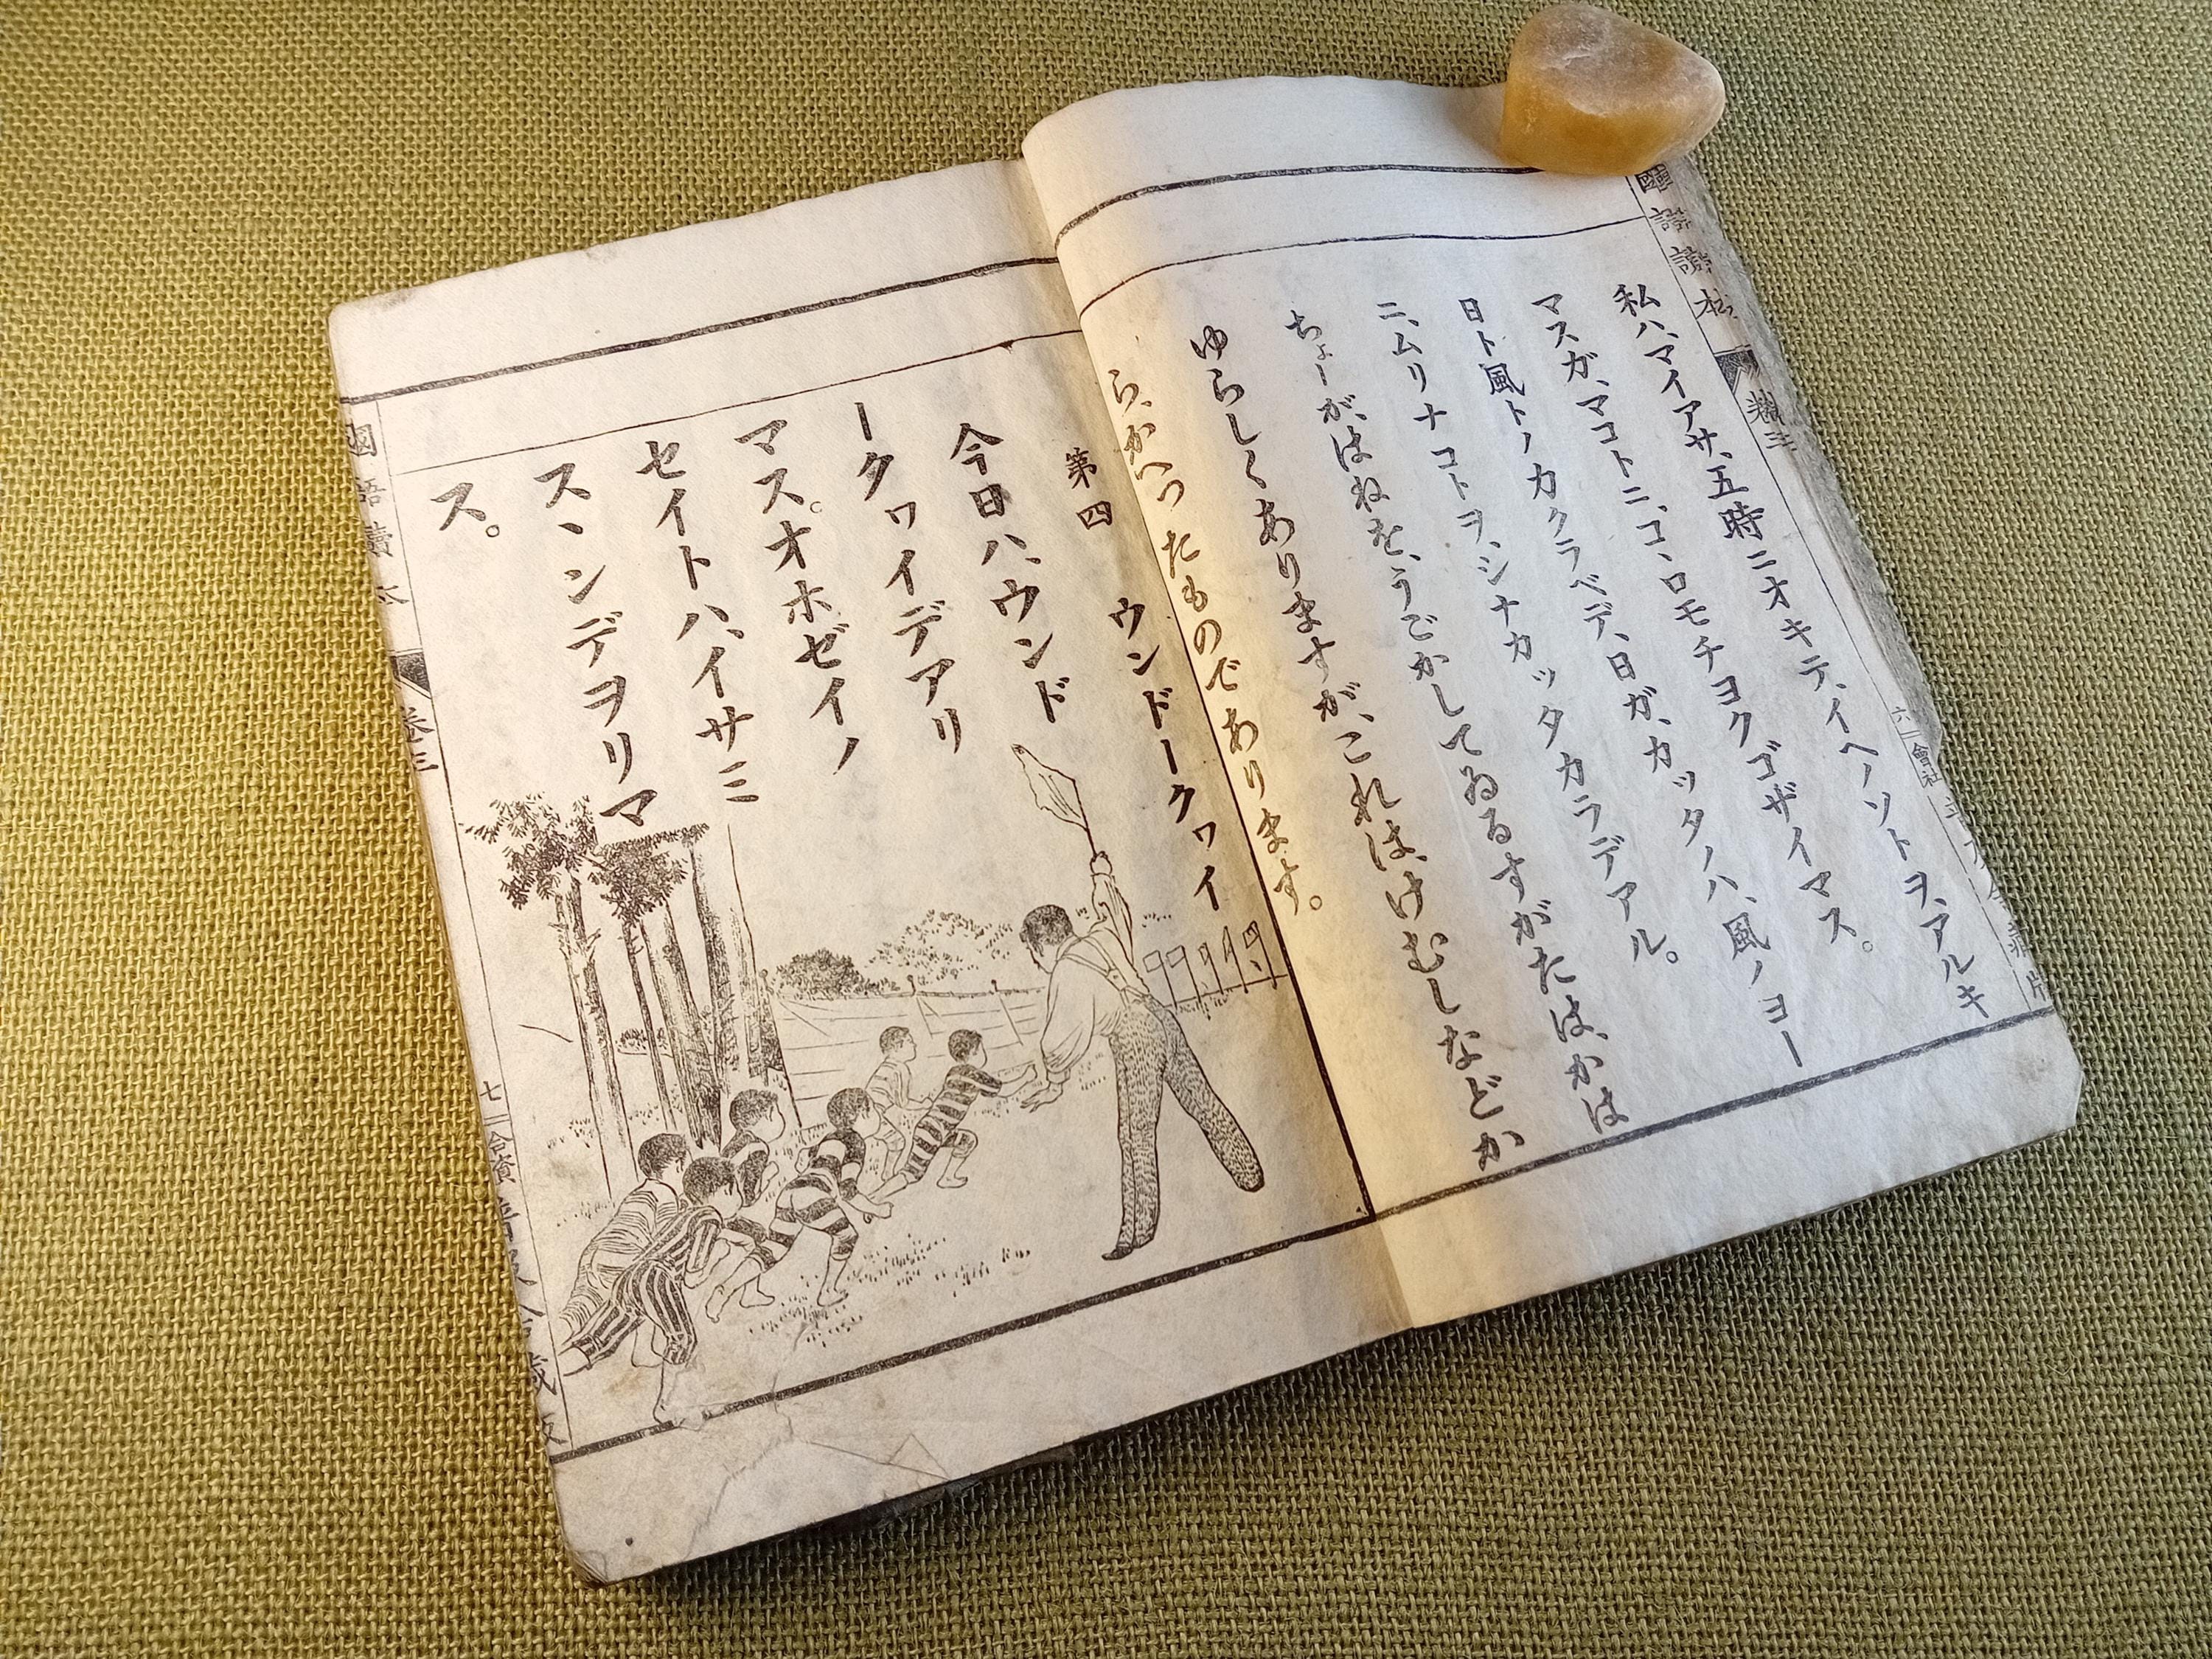 國語讀本
私ハ、マイアサ、五時ニオキテ、イヘノソトヲ、アルキ
マスガ、マコトニ、コヽロモチヨクゴザイマス。
日ト風トノカクラベデ、日ガ、カッタノハ、風ノヨー
ニ、ムリナコトヲ、シナカッタカラデアル。
ちょーが、はねを、うごかしてゐるすがたは、かは
ゆらしくありますが、これは、けむしなどか
ら、かへつたものであります。
第四 ウンドークヮイ
今日ハ、ウンド
ークヮイデアリ
マス。オホゼイノ
セイトハ、イサミ
スヽンデヲリマ
ス。
國語讀本
卷三
七